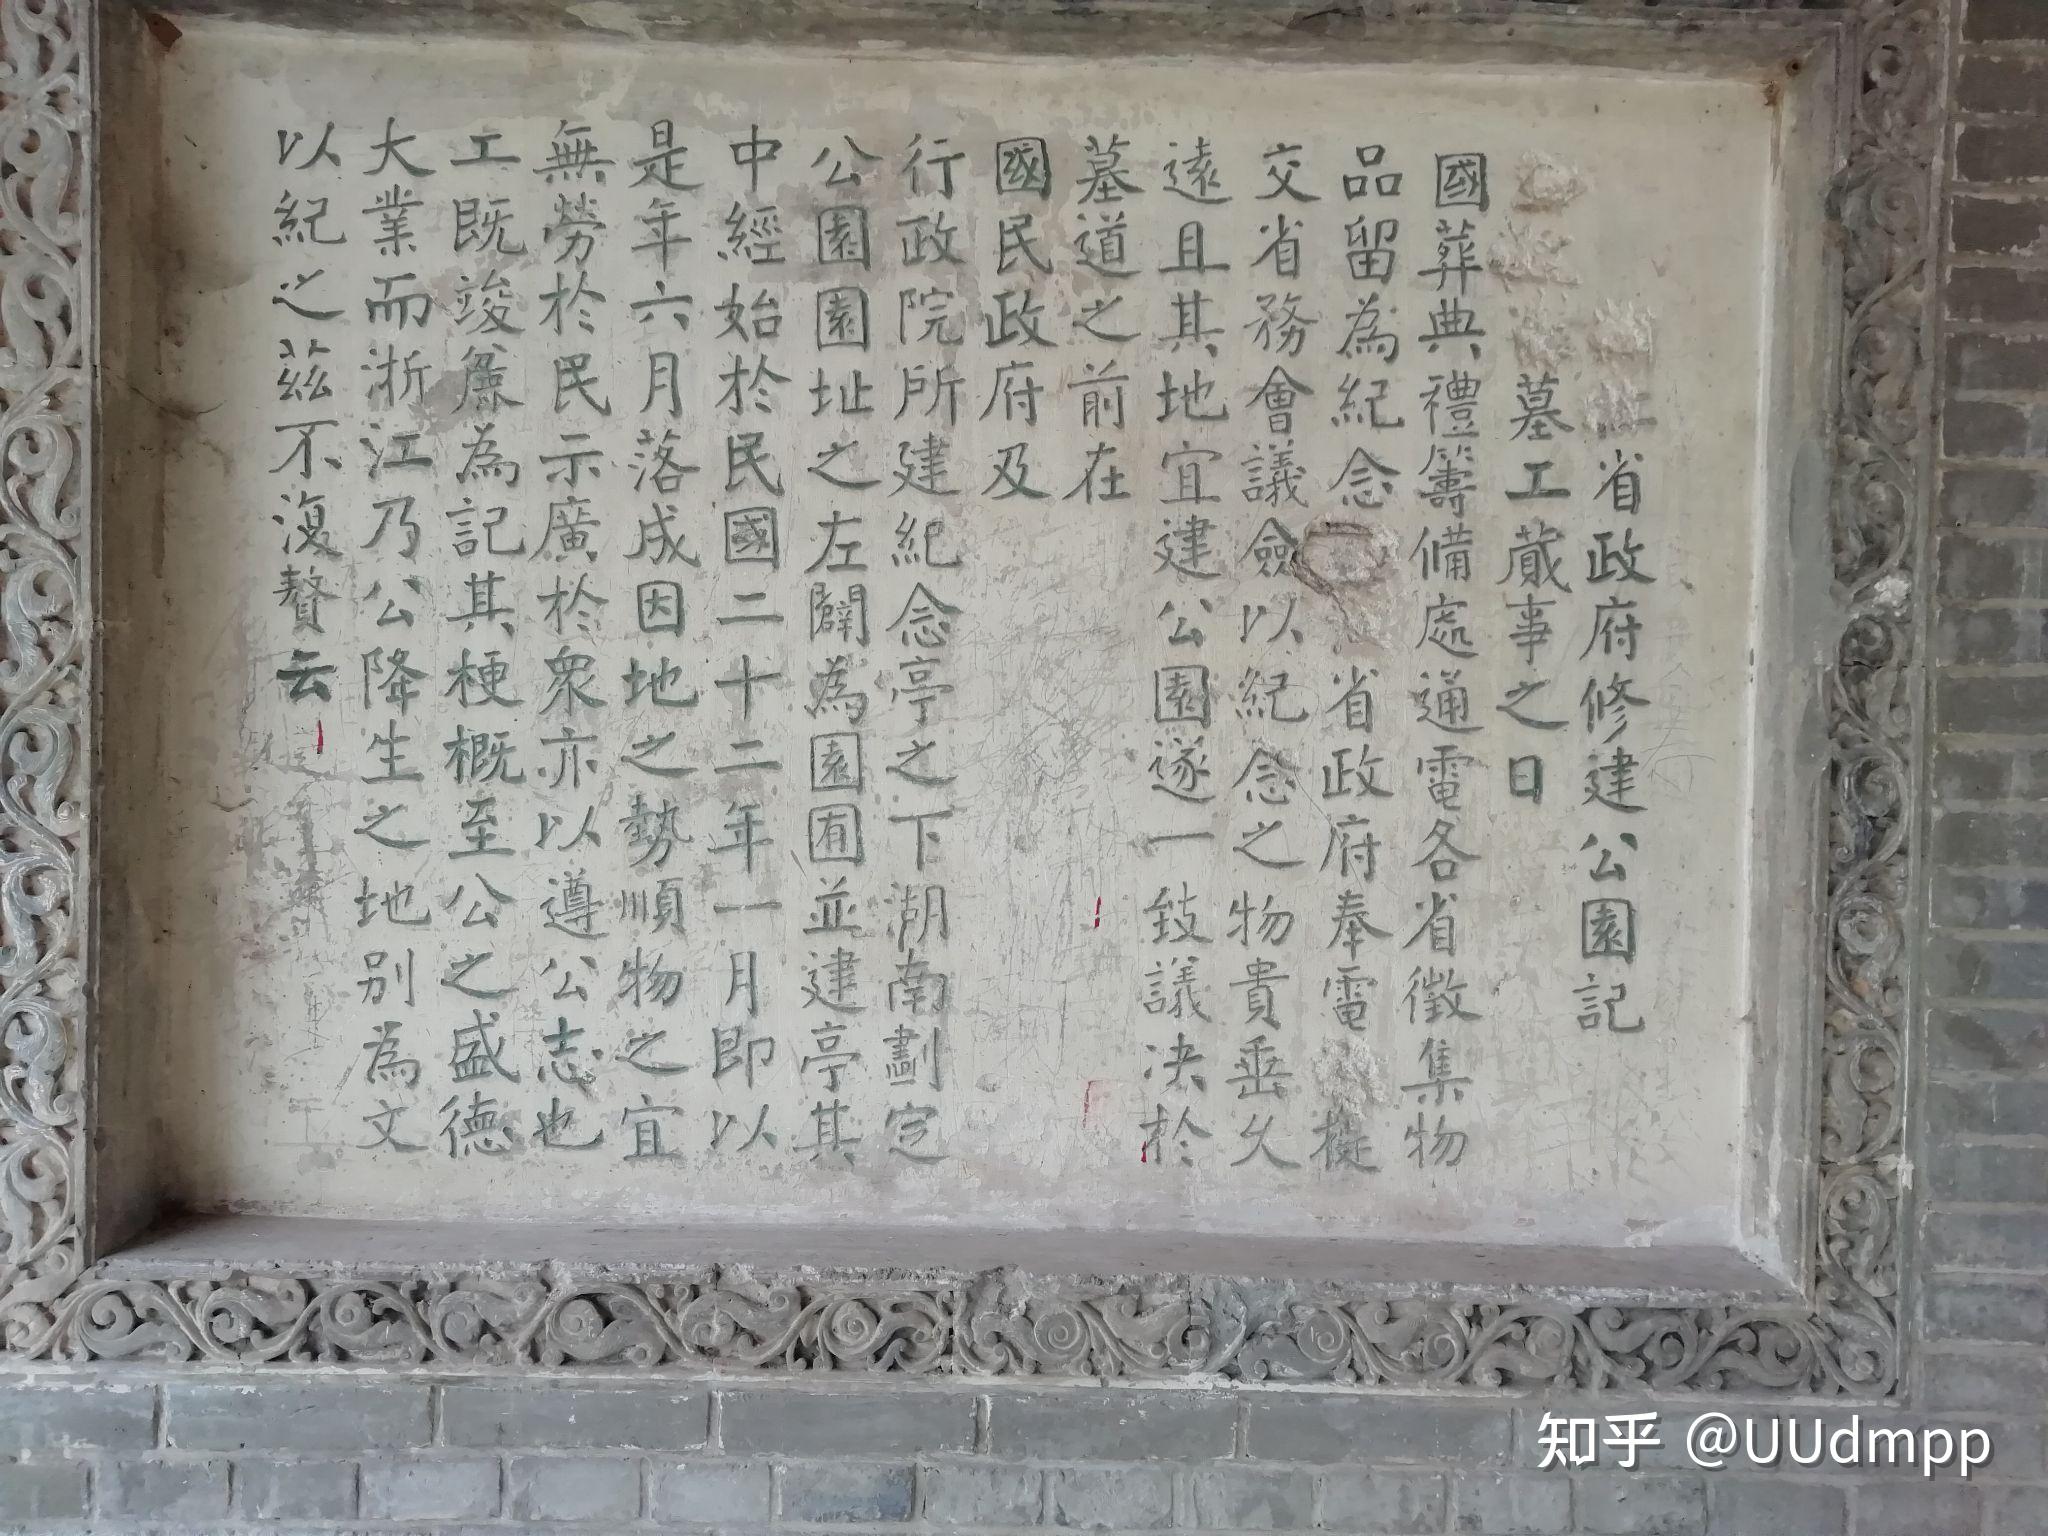 省政府修建公園記
墓工蕆事之日
國葬典禮籌備處通電各省徵集物
品留為紀念 省政府奉電 提
交省務會議僉以紀念之物貴垂久
遠且其地宜建公園遂一致議決於
墓道之前在
國民政府及
行政院所建紀念亭之下湖南劃定
公園園址之左闢為園囿並建亭其
中經始於民國二十二年一月即以
是年六月落成因地之勢順物之宜
無勞於民示廣於衆亦以遵公志也
工既竣 為記其梗概至公之盛德
大業而浙江乃公降生之地別為文
以紀之茲不復贅云
知乎 @UUdmpp